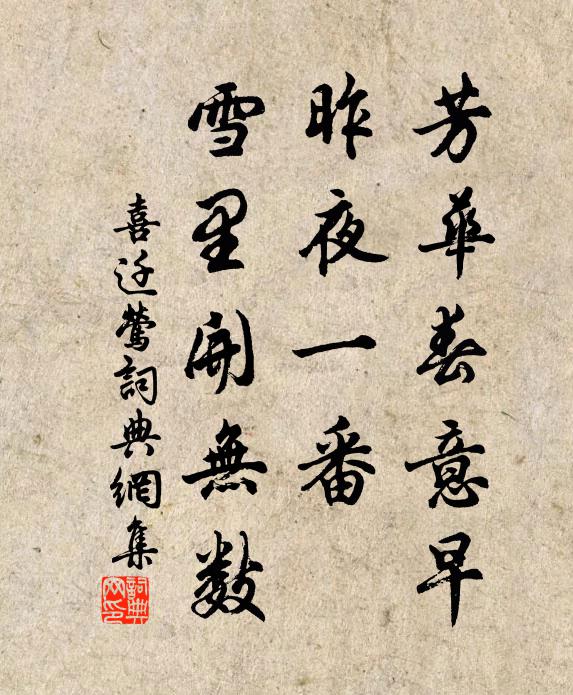 芳華春意早
昨夜一番
雪里開無数
喜迁鶯詞典網集
詞典网印